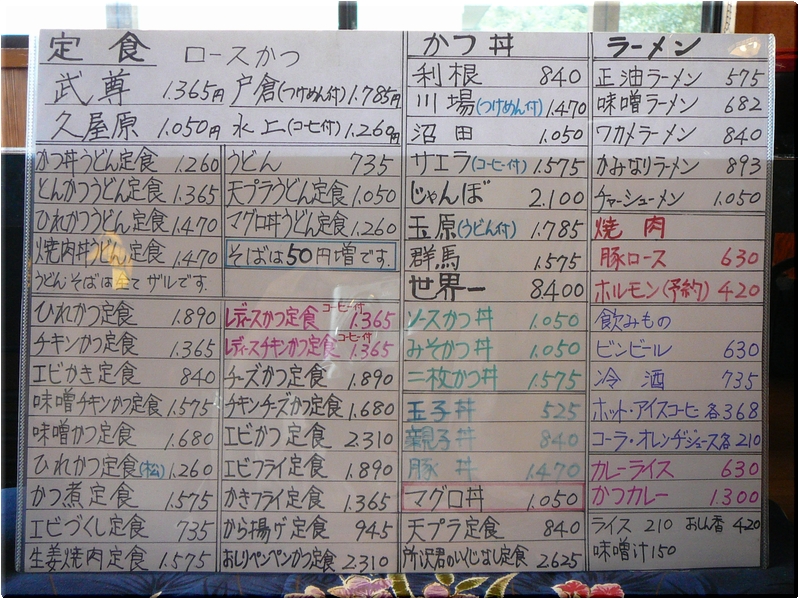 定食 ロースかつ
武尊 1.365円 戸倉(つけめん付)1.785円
久屋原 1.050円 水上(コーヒー付)1.260円
かつ丼うどん定食 1.260
とんかつうどん定食 1.365
ひれかつうどん定食 1.470
焼肉丼うどん定食 1.470
うどん・そばは全て ザルです.
うどん 735
天プラうどん定食 1.050
マグロ丼うどん定食 1.260
そばは50円増です.
ひれかつ定食 1.890
チキンかつ定食 1.365
エビかき定食 840
味噌チキンかつ定食 1.575
味噌かつ定食 1.680
ひれかつ定食(松) 1.260
かつ煮定食 1.575
エビづくし定食 735
生姜焼肉定食 1.575
レディースかつ定食 コーヒー付 1.365
レディースチキンかつ定食 コーヒー付 1.365
チーズかつ定食 1.890
チキンチーズかつ定食 1.680
エビかつ定食 2.310
エビフライ定食 1.890
かきフライ定食 1.365
から揚げ定食 945
おしりペンペンかつ定食 2.310
かつ丼
利根 840
川場(つけめん付) 1.470
沼田 1.050
サエラ(コーヒー付) 1.575
じゃんぼ 2.100
玉原(うどん付) 1.785
群馬 1.575
世界一 8.400
ソースかつ丼 1.050
みそかつ丼 1.050
二枚かつ丼 1.575
玉子丼 525
親子丼 840
豚丼 1.470
マグロ丼 1.050
天プラ定食 840
所沢君のいくじなし定食 2.625
ラーメン
正油ラーメン 575
味噌ラーメン 682
ワカメラーメン 840
かみなりラーメン 893
チャーシューメン 1.050
焼肉
豚ロース 630
ホルモン(予約) 420
飲みもの
ビンビール 630
冷酒 735
ホット・アイスコーヒー 各368
コーラ・オレンヂジュース各 210
カレーライス 630
かつカレー 1.300
ライス 210 おしん香 420
味噌汁150